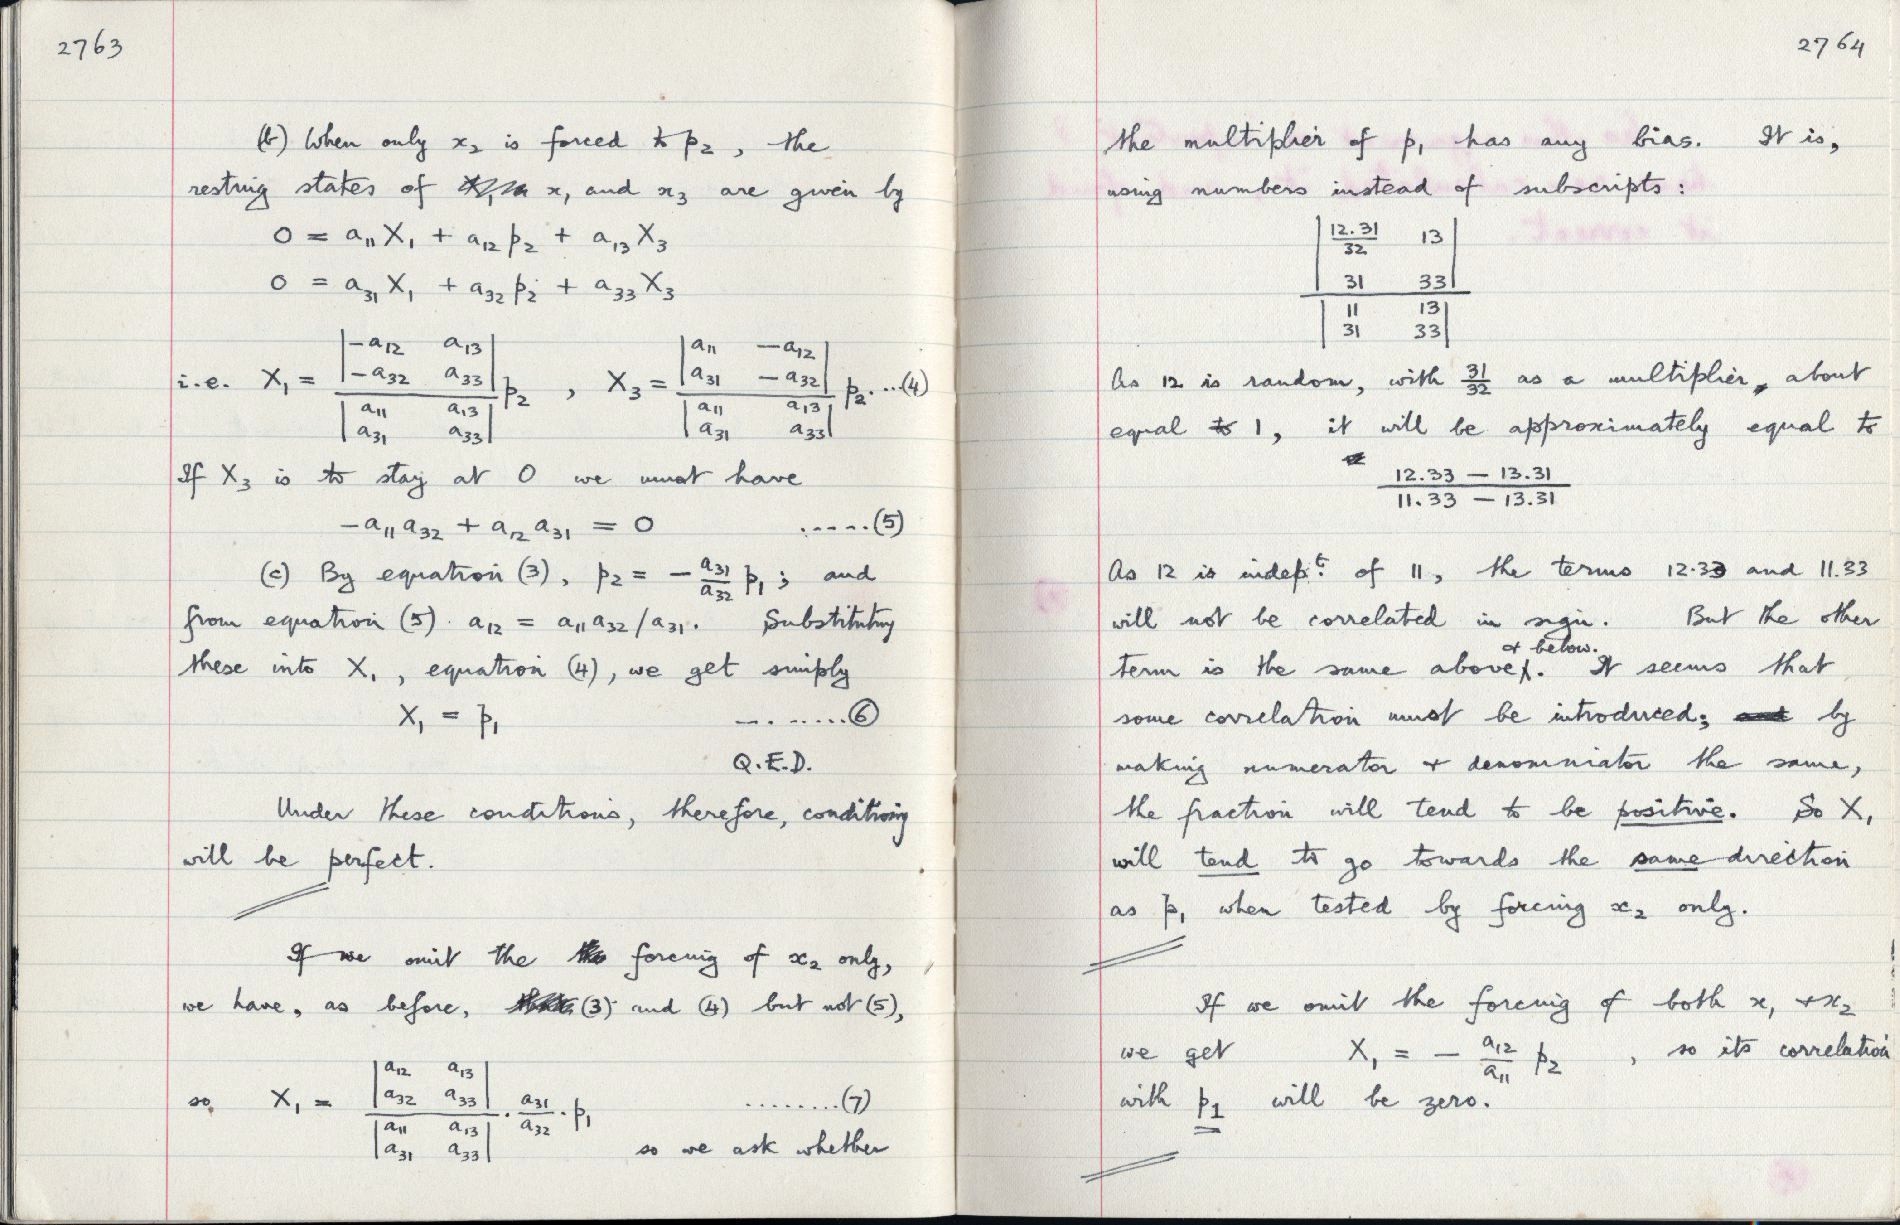 2763
(b) When only x₂ is forced to p₂, the
resting states of x₁ and x₃ are given by
0 = a₁₁X₁ + a₁₂p₂ + a₁₃X₃
0 = a₃₁X₁ + a₃₂p₂ + a₃₃X₃
i.e. X₁ = |−a₁₂ a₁₃; −a₃₂ a₃₃| / |a₁₁ a₁₃; a₃₁ a₃₃| p₂ , X₃ = |a₁₁ −a₁₂; a₃₁ −a₃₂| / |a₁₁ a₁₃; a₃₁ a₃₃| p₂ ....(4)
If X₃ is to stay at 0 we must have
−a₁₁a₃₂ + a₁₂a₃₁ = 0 .....(5)
(c) By equation (3), p₂ = − a₃₁/a₃₂ p₁ ; and
from equation (5). a₁₂ = a₁₁a₃₂/a₃₁. Substituting
these into X₁, equation (4), we get simply
X₁ = p₁ ........(6)
Q.E.D.
Under these conditions, therefore, conditioning
will be perfect.
If we omit the forcing of x₂ only,
we have, as before, (3) and (4) but not (5),
so X₁ = |a₁₂ a₁₃; a₃₂ a₃₃| / |a₁₁ a₁₃; a₃₁ a₃₃| . a₃₁/a₃₂ . p₁ ........(7)
so we ask whether
2764
the multiplier of p₁ has any bias. It is,
using numbers instead of subscripts:
|12.31/32 13|
|31 33|
|11 13|
|31 33|
As 12 is random, with 31/32 as a multiplier, about
equal to 1, it will be approximately equal to
12.33 − 13.31
11.33 − 13.31
As 12 is indepᵗ. of 11, the terms 12.33 and 11.33
will not be correlated in sign. But the other
term is the same above & below. It seems that
some correlation must be introduced; by
making numerator & denominator the same,
the fraction will tend to be positive. So X₁
will tend to go towards the same direction
as p₁ when tested by forcing x₂ only.
If we omit the forcing of both x₁ & x₂
we get X₁ = − a₁₂/a₁₁ p₂ , so its correlation
with p₁ will be zero.